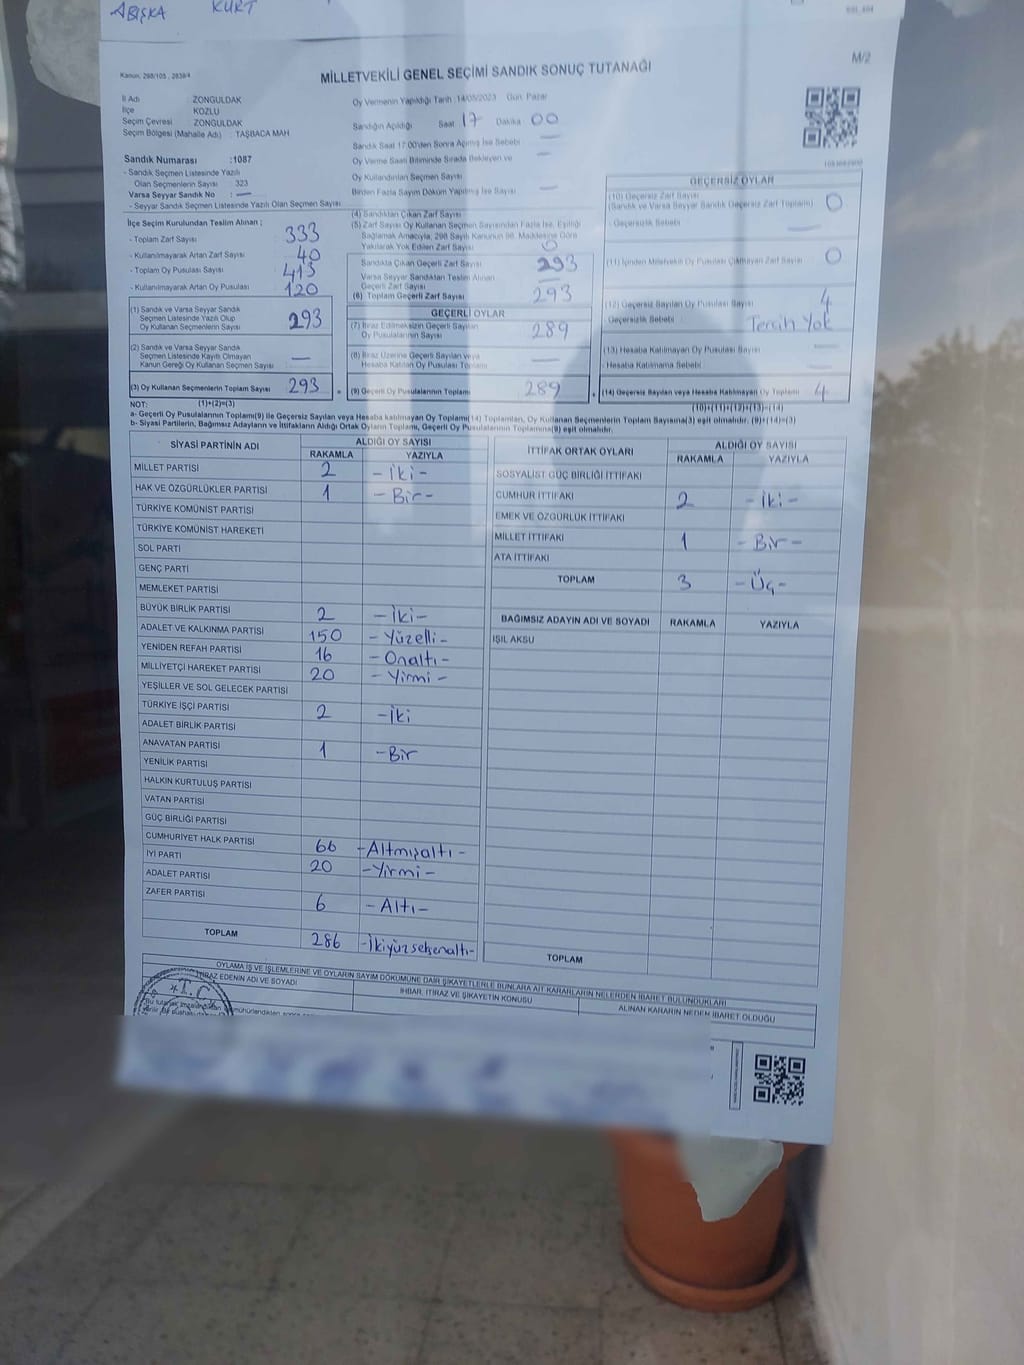 ABIŞKA KURT
M/2
Kanun: 298/105 , 2839/4
MİLLETVEKİLİ GENEL SEÇİMİ SANDIK SONUÇ TUTANAĞI
İl Adı ZONGULDAK
İlçe KOZLU
Seçim Çevresi : ZONGULDAK
Seçim Bölgesi (Mahalle Adı) : TAŞBACA MAH
Oy Vermenin Yapıldığı Tarih :14/05/2023 Gün: Pazar
Sandığın Açıldığı Saat 17 Dakika 00
Sandık Saat 17:00'den Sonra Açılmış İse Sebebi —
Oy Verme Saati Bitiminde Sırada Bekleyen ve —
Oy Kullandırılan Seçmen Sayısı
Birden Fazla Sayım Döküm Yapılmış İse Sayısı —
Sandık Numarası :1087
- Sandık Seçmen Listesinde Yazılı
Olan Seçmenlerin Sayısı 323
Varsa Seyyar Sandık No : —
- Seyyar Sandık Seçmen Listesinde Yazılı Olan Seçmen Sayısı
İlçe Seçim Kurulundan Teslim Alınan ;
- Toplam Zarf Sayısı 333
- Kullanılmayarak Artan Zarf Sayısı 40
- Toplam Oy Pusulası Sayısı 413
- Kullanılmayarak Artan Oy Pusulası 120
(1) Sandık ve Varsa Seyyar Sandık
Seçmen Listesinde Yazılı Olup
Oy Kullanan Seçmenlerin Sayısı 293
(2) Sandık ve Varsa Seyyar Sandık
Seçmen Listesinde Kayıtlı Olmayan
Kanun Gereği Oy Kullanan Seçmen Sayısı —
(3) Oy Kullanan Seçmenlerin Toplam Sayısı 293
(1)+(2)=(3)
(4) Sandıktan Çıkan Zarf Sayısı
(5) Zarf Sayısı Oy Kullanan Seçmen Sayısından Fazla İse, Eşitliği
Sağlamak Amacıyla, 298 Sayılı Kanunun 98. Maddesine Göre
Yakılarak Yok Edilen Zarf Sayısı 0
Sandıkta Çıkan Geçerli Zarf Sayısı 293
Varsa Seyyar Sandıktan Teslim Alınan
Geçerli Zarf Sayısı —
(6) Toplam Geçerli Zarf Sayısı 293
GEÇERLİ OYLAR
(7) İtiraz Edilmeksizin Geçerli Sayılan
Oy Pusulalarının Sayısı 289
(8) İtiraz Üzerine Geçerli Sayılan veya
Hesaba Katılan Oy Pusulası Toplamı —
(9) Geçerli Oy Pusulalarının Toplamı 289
GEÇERSİZ OYLAR
(10) Geçersiz Zarf Sayısı
(Sandık ve Varsa Seyyar Sandık Geçersiz Zarf Toplamı) 0
- Geçersizlik Sebebi —
(11) İçinden Milletvekili Oy Pusulası Çıkmayan Zarf Sayısı 0
(12) Geçersiz Sayılan Oy Pusulası Sayısı 4
Geçersizlik Sebebi : Tercih Yok
(13) Hesaba Katılmayan Oy Pusulası Sayısı —
- Hesaba Katılmama Sebebi —
(14) Geçersiz Sayılan veya Hesaba Katılmayan Oy Toplamı 4
(10)+(11)+(12)+(13)=(14)
NOT:
a- Geçerli Oy Pusulalarının Toplamı(9) ile Geçersiz Sayılan veya Hesaba katılmayan Oy Toplamı(14) Toplamları, Oy Kullanan Seçmenlerin Toplam Sayısına(3) eşit olmalıdır. (9)+(14)=(3)
b- Siyasi Partilerin, Bağımsız Adayların ve İttifakların Aldığı Ortak Oyların Toplamı, Geçerli Oy Pusulalarının Toplamına(9) eşit olmalıdır.
SİYASİ PARTİNİN ADI ALDIĞI OY SAYISI
RAKAMLA YAZIYLA
MİLLET PARTİSİ 2 - İki -
HAK VE ÖZGÜRLÜKLER PARTİSİ 1 - Bir -
TÜRKİYE KOMÜNİST PARTİSİ
TÜRKİYE KOMÜNİST HAREKETİ
SOL PARTİ
GENÇ PARTİ
MEMLEKET PARTİSİ
BÜYÜK BİRLİK PARTİSİ 2 - İki -
ADALET VE KALKINMA PARTİSİ 150 - Yüzelli -
YENİDEN REFAH PARTİSİ 16 - Onaltı -
MİLLİYETÇİ HAREKET PARTİSİ 20 - Yirmi -
YEŞİLLER VE SOL GELECEK PARTİSİ
TÜRKİYE İŞÇİ PARTİSİ 2 - İki
ADALET BİRLİK PARTİSİ
ANAVATAN PARTİSİ 1 - Bir
YENİLİK PARTİSİ
HALKIN KURTULUŞ PARTİSİ
VATAN PARTİSİ
GÜÇ BİRLİĞİ PARTİSİ
CUMHURİYET HALK PARTİSİ 66 - Altmışaltı -
İYİ PARTİ 20 - Yirmi -
ADALET PARTİSİ
ZAFER PARTİSİ 6 - Altı -
TOPLAM 286 - İkiyüzseksenaltı -
İTTİFAK ORTAK OYLARI ALDIĞI OY SAYISI
RAKAMLA YAZIYLA
SOSYALİST GÜÇ BİRLİĞİ İTTİFAKI
CUMHUR İTTİFAKI 2 - İki -
EMEK VE ÖZGÜRLÜK İTTİFAKI
MİLLET İTTİFAKI 1 - Bir -
ATA İTTİFAKI
TOPLAM 3 - Üç -
BAĞIMSIZ ADAYIN ADI VE SOYADI RAKAMLA YAZIYLA
IŞIL AKSU
TOPLAM
OYLAMA İŞ VE İŞLEMLERİNE VE OYLARIN SAYIM DÖKÜMÜNE DAİR ŞİKAYETLERLE BUNLARA AİT KARARLARIN NELERDEN İBARET BULUNDUKLARI
İTİRAZ EDENİN ADI VE SOYADI
İHBAR, İTİRAZ VE ŞİKAYETİN KONUSU
ALINAN KARARIN NEDEN İBARET OLDUĞU
T.C